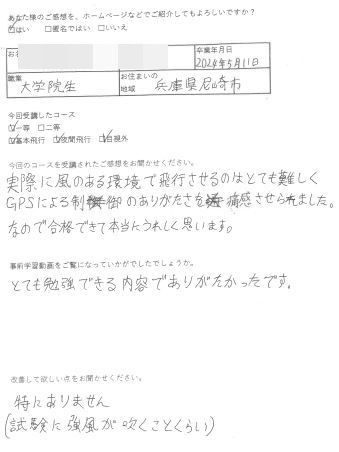 あなた様のご感想を、ホームページなどでご紹介してもよろしいですか?
☑はい □匿名ではい □いいえ
卒業年月日
2024年5月11日
職業
大学院生
お住まいの
地域
兵庫県尼崎市
今回受講したコース
☑一等 □二等
☑基本飛行 ☑夜間飛行 ☑目視外
今回のコースを受講されたご感想をお聞かせください。
実際に風のある環境で飛行させるのはとても難しく
GPSによる制御のありがたさを痛感させられました。
なので合格できて本当にうれしく思います。
事前学習動画をご覧になっていかがでしたでしょうか。
とても勉強できる内容でありがたかったです。
改善して欲しい点をお聞かせください。
特にありません
(試験に強風が吹くことくらい)